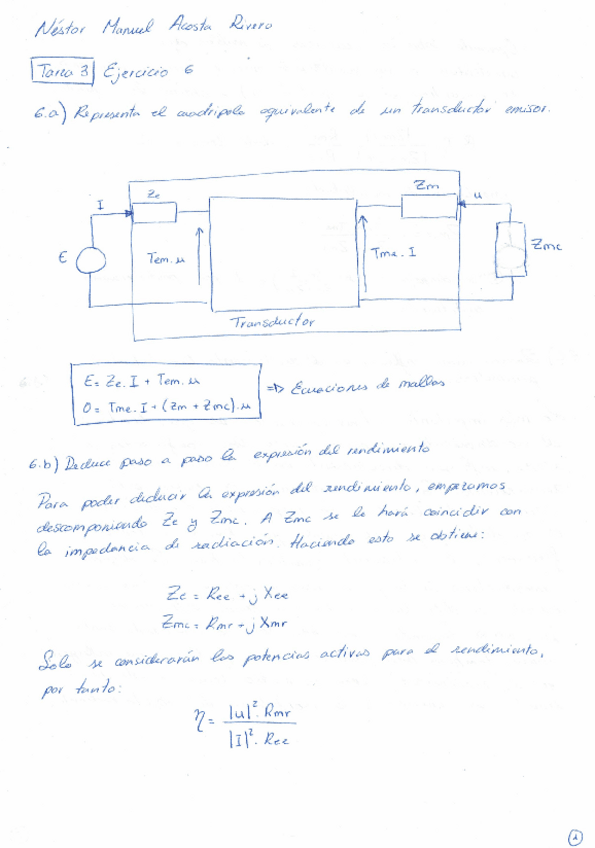 Néstor Manuel Acosta Rivero
Tarea 3 Ejercicio 6
6.a) Representa el cuadripolo equivalente de un transductor emisor.
I
Ze
Zm
u
E
Tem.u
Tme.I
Zmc
Transductor
E = Ze.I + Tem.u
0 = Tme.I + (Zm + Zmc).u
=> Ecuaciones de mallas
6.b) Deduce paso a paso la expresión del rendimiento
Para poder deducir la expresión del rendimiento, empezamos
descomponiendo Ze y Zmc. A Zmc se le hará coincidir con
la impedancia de radiación. Haciendo esto se obtiene:
Ze = Ree + jXee
Zmc = Rmr + jXmr
Solo se considerarán las potencias activas para el rendimiento,
por tanto:
η = |u|². Rmr / |I|². Ree
1